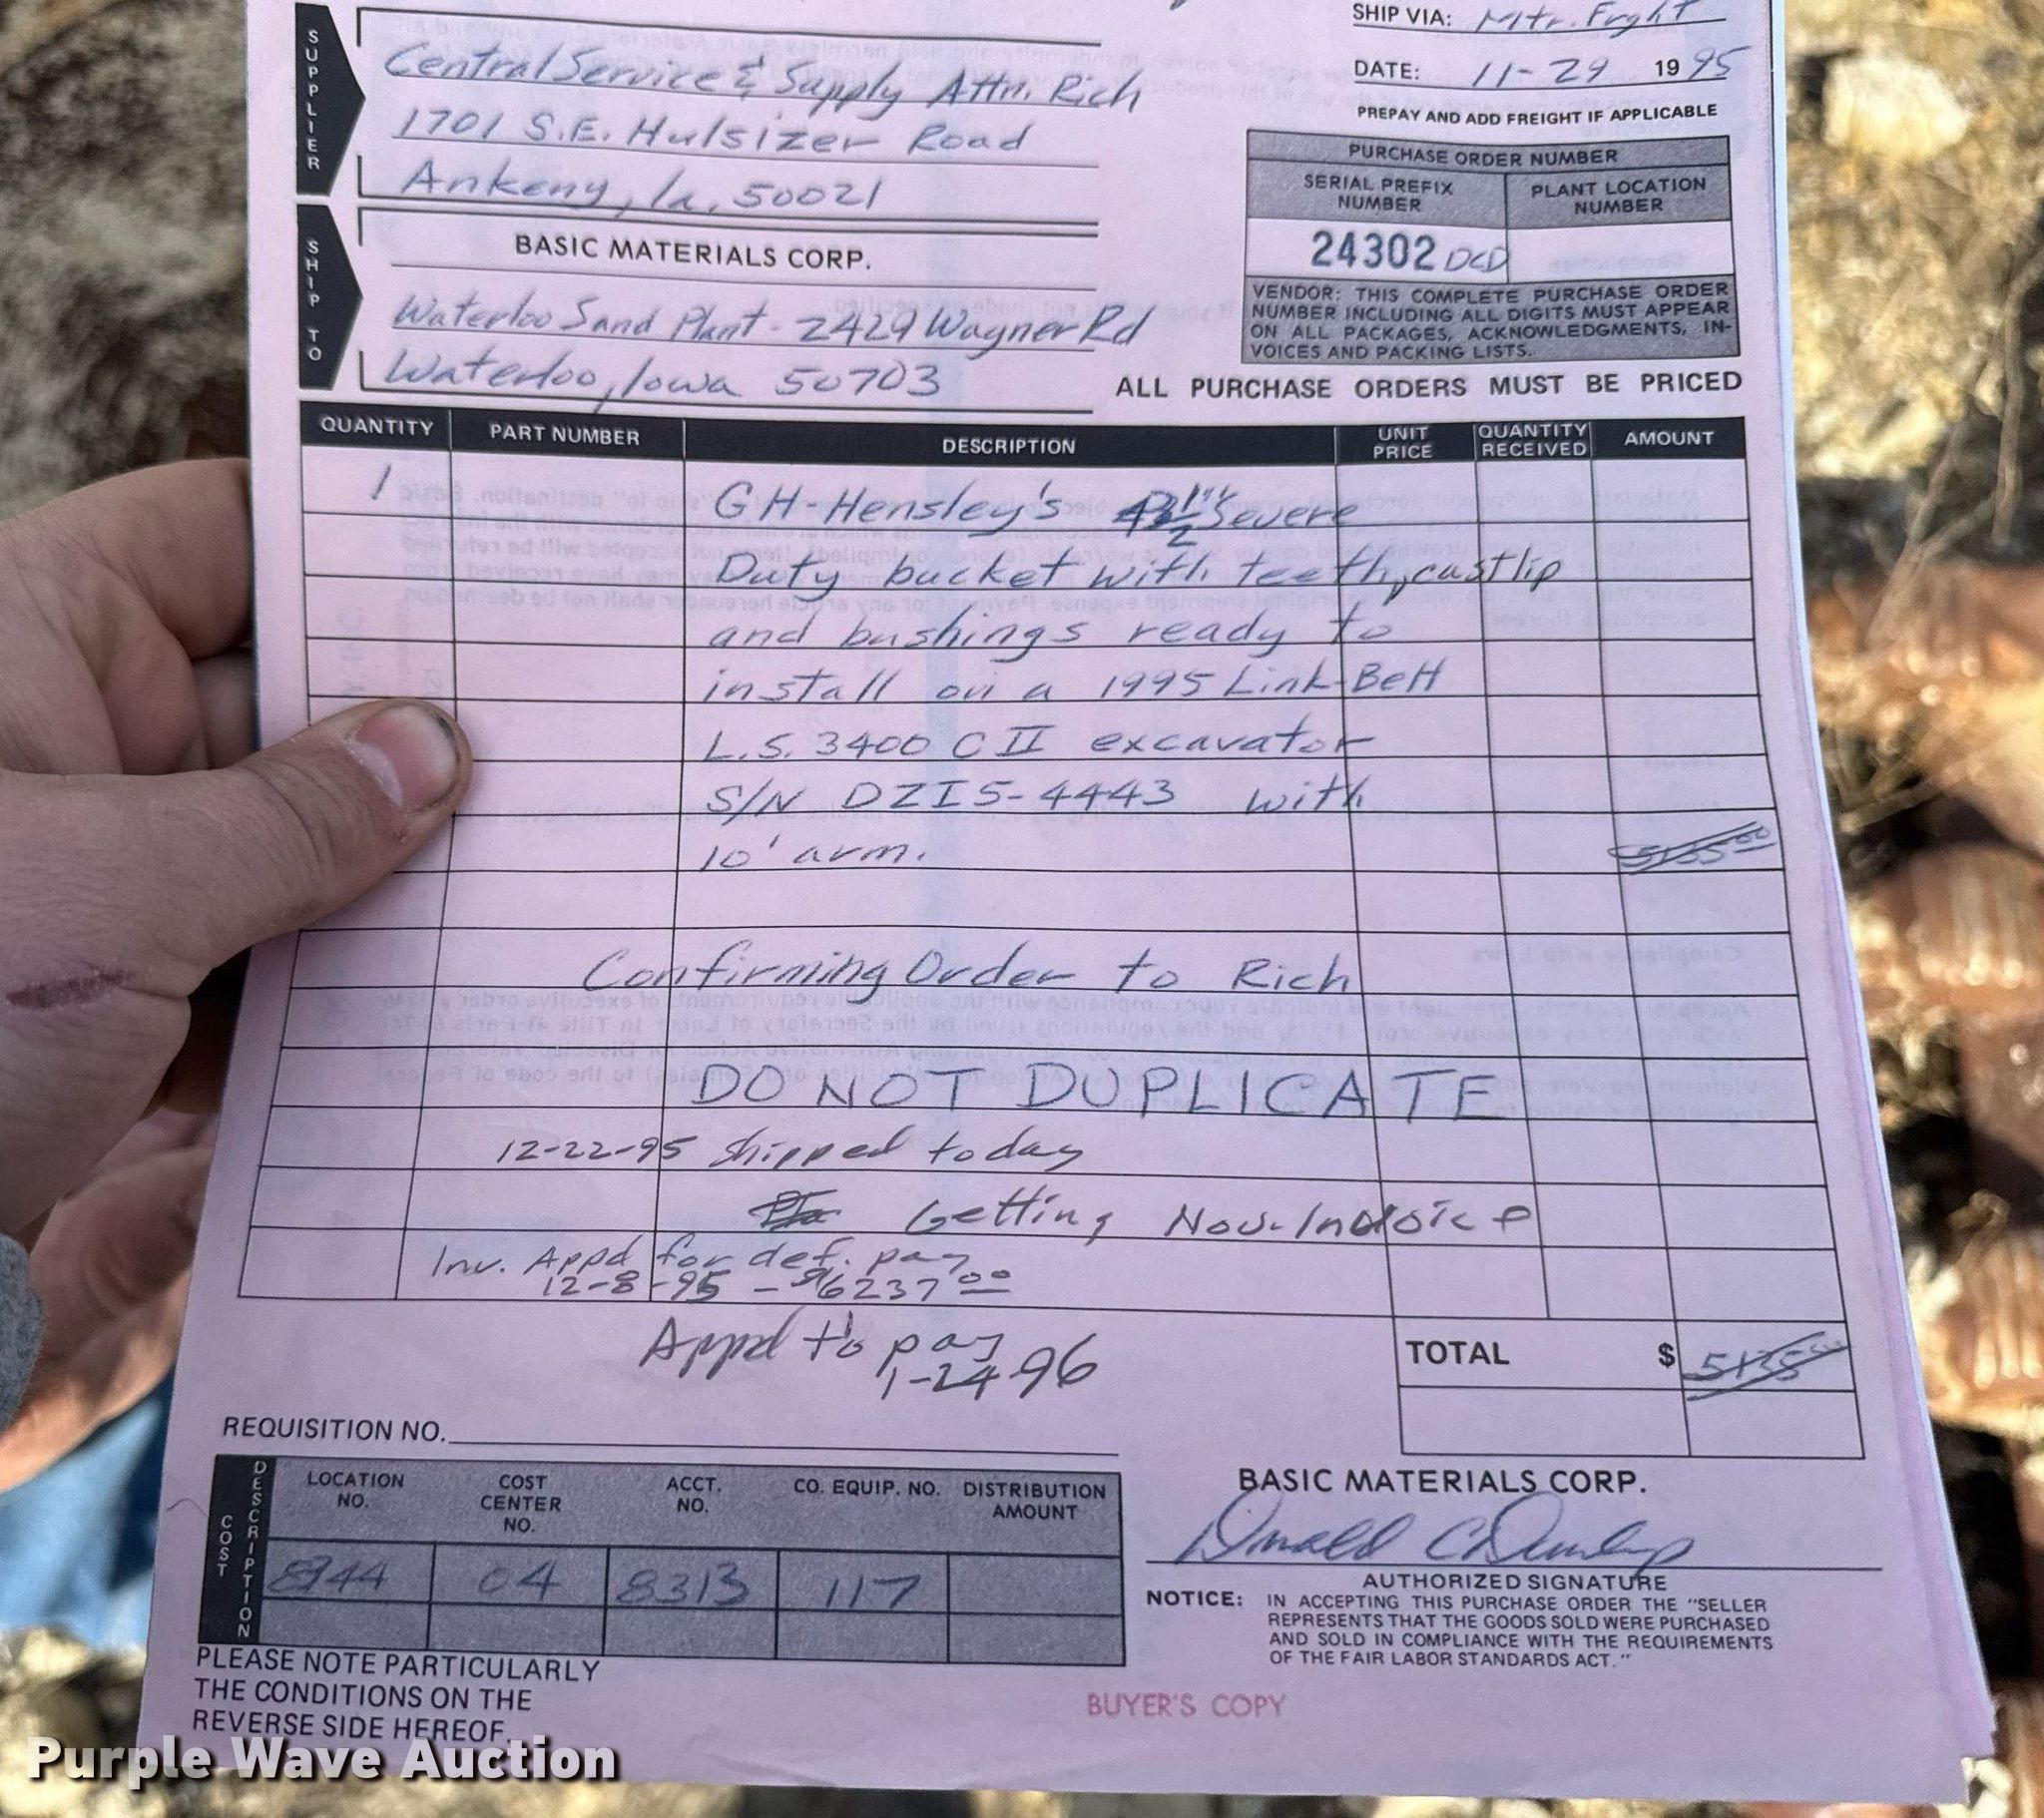 SHIP VIA: Mtr. Frght
SUPPLIER
Central Service & Supply Attn. Rich
DATE: 11-29 1995
1701 S.E. Hulsizer Road
PREPAY AND ADD FREIGHT IF APPLICABLE
Ankeny, Ia. 50021
PURCHASE ORDER NUMBER
SERIAL PREFIX NUMBER
PLANT LOCATION NUMBER
24302 DCD
SHIP TO
BASIC MATERIALS CORP.
Waterloo Sand Plant - 2429 Wagner Rd
Waterloo, Iowa 50703
VENDOR: THIS COMPLETE PURCHASE ORDER
NUMBER INCLUDING ALL DIGITS MUST APPEAR
ON ALL PACKAGES, ACKNOWLEDGMENTS, IN-
VOICES AND PACKING LISTS.
ALL PURCHASE ORDERS MUST BE PRICED
QUANTITY PART NUMBER DESCRIPTION UNIT PRICE QUANTITY RECEIVED AMOUNT
1 GH-Hensley's Severe
Duty bucket with teeth, castlip
and bushings ready to
install on a 1995 Link-Belt
L.S. 3400 C II excavator
S/N DZI5-4443 with
10' arm.
Confirming Order to Rich
DO NOT DUPLICATE
12-22-95 shipped today
Getting Nov. Indoice
Inv. Appd for def. pay
12-8-95 - $6237 00
Appd to pay
1-24-96
TOTAL $ 5135 00
REQUISITION NO.
COST DESCRIPTION
LOCATION NO. COST CENTER NO. ACCT. NO. CO. EQUIP. NO. DISTRIBUTION AMOUNT
8944 04 8313 117
BASIC MATERIALS CORP.
Donald C Dunlap
AUTHORIZED SIGNATURE
NOTICE: IN ACCEPTING THIS PURCHASE ORDER THE "SELLER
REPRESENTS THAT THE GOODS SOLD WERE PURCHASED
AND SOLD IN COMPLIANCE WITH THE REQUIREMENTS
OF THE FAIR LABOR STANDARDS ACT."
PLEASE NOTE PARTICULARLY
THE CONDITIONS ON THE
REVERSE SIDE HEREOF.
BUYER'S COPY
Purple Wave Auction